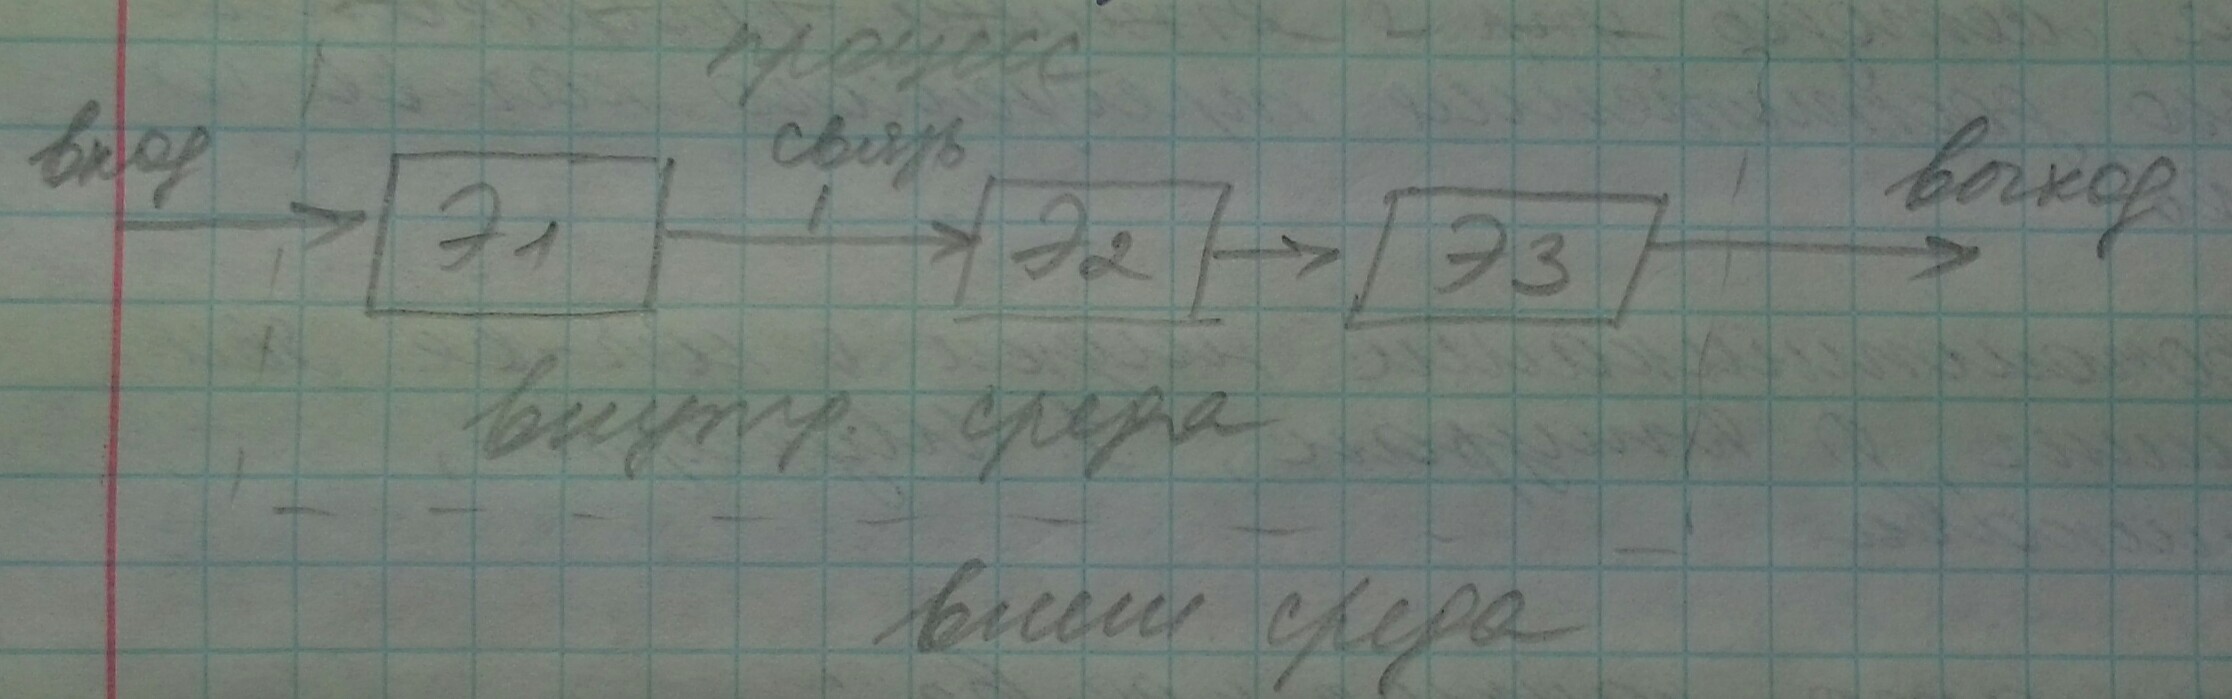 процесс
вход связь выход
Э1 Э2 Э3
внутр. среда
внеш среда